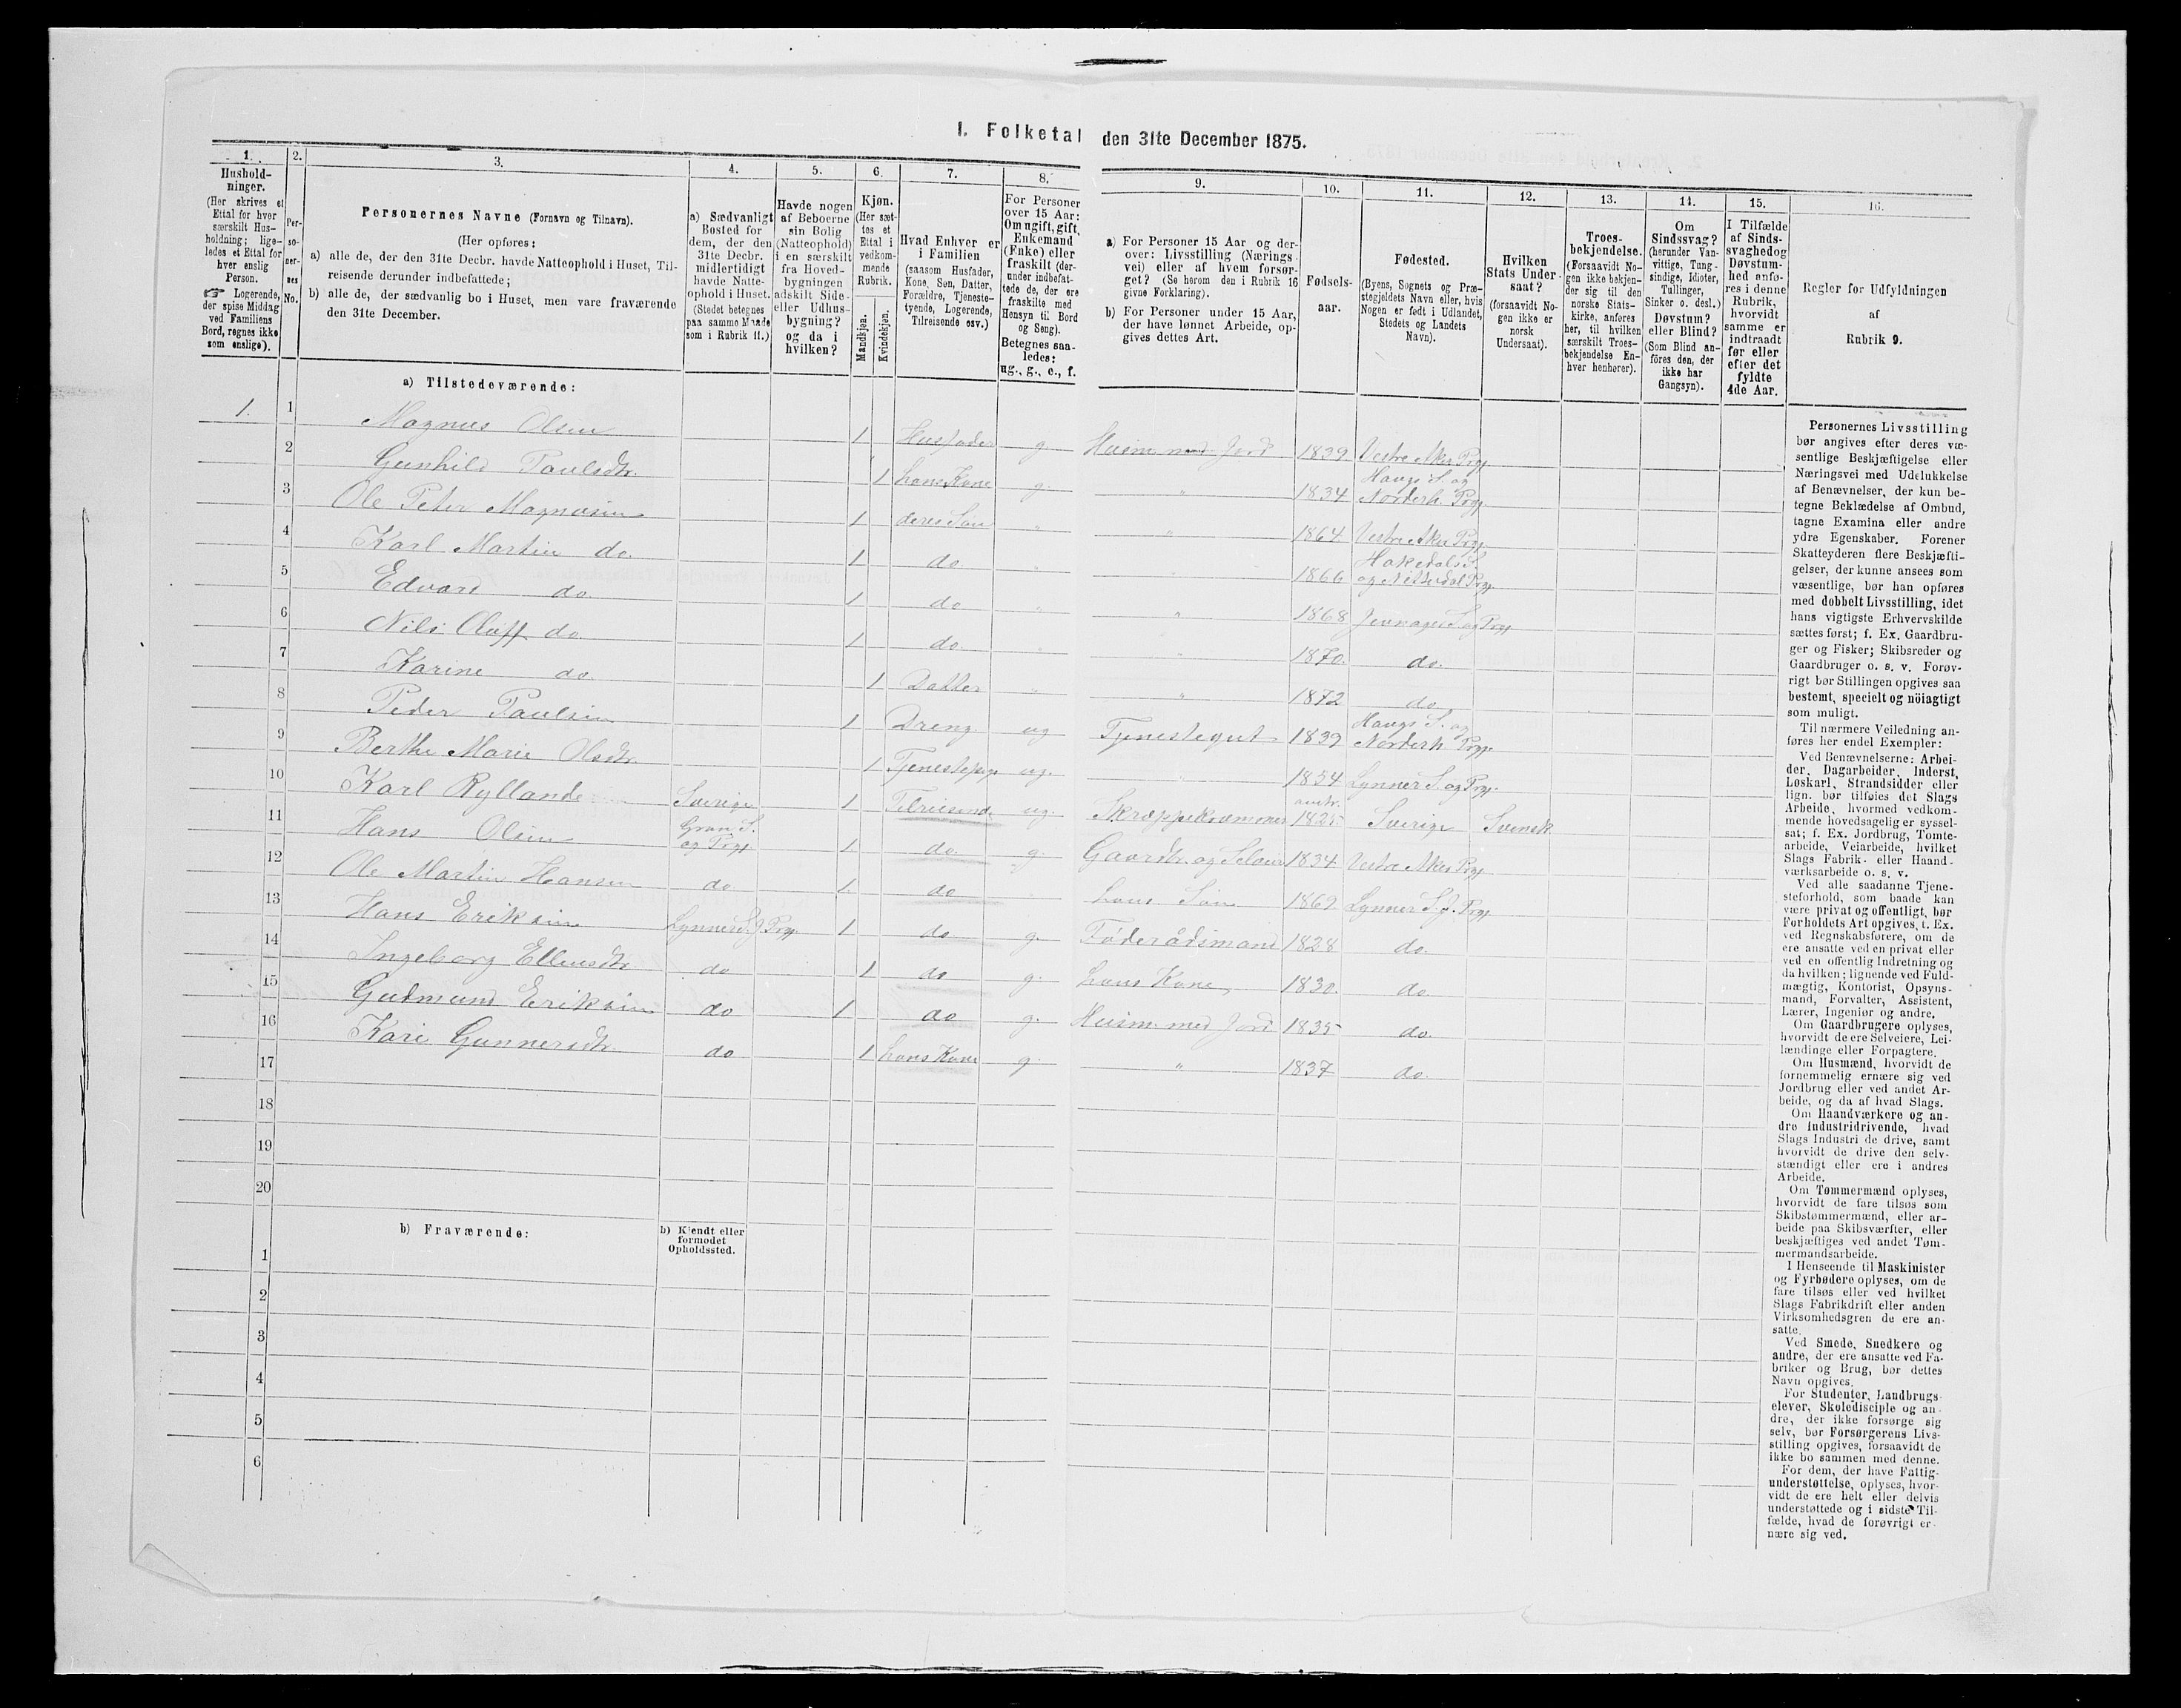 I. Folketal den 31te December 1875.
1.
Hushold-
ninger.
(Her skrives et
Ettal for hver
særskilt Hus-
holdning; lige-
ledes et Ettal for
hver enslig
Person.
☞ Logerende,
der spise Middag
ved Familiens
Bord, regnes ikke
som enslige).
2.
Per-
so-
ner-
nes
No.
3.
Personernes Navne (Fornavn og Tilnavn).
(Her opføres:
a) alle de, der den 31te Decbr. havde Natteophold i Huset, Til-
reisende derunder indbefattede;
b) alle de, der sædvanlig bo i Huset, men vare fraværende
den 31te December.
4.
a) Sædvanligt
Bosted for
dem, der den
31te Decbr.
midlertidigt
havde Natte-
ophold i Huset.
(Stedet betegnes
paa samme Maade
som i Rubrik 11.)
5.
Havde nogen
af Beboerne
sin Bolig
(Natteophold)
i en særskilt
fra Hoved-
bygningen
adskilt Side-
eller Udhus-
bygning?
og da i
hvilken?
6.
Kjøn.
(Her sæt-
tes et
Ettal i
vedkom-
mende
Rubrik.
Mandkjøn.
Kvindekjøn.
7.
Hvad Enhver er
i Familien
(saasom Husfader,
Kone, Søn, Datter,
Forældre, Tjeneste-
tyende, Logerende,
Tilreisende osv.)
8.
For Personer
over 15 Aar:
Om ugift, gift,
Enkemand
(Enke) eller
fraskilt (der-
under indbefat-
tede de, der ere
fraskilte med
Hensyn til Bord
og Seng).
Betegnes saa-
ledes:
ug., g., e., f.
9.
a) For Personer 15 Aar og der-
over: Livsstilling (Nærings-
vei) eller af hvem forsør-
get? (Se herom den i Rubrik 16
givne Forklaring).
b) For Personer under 15 Aar,
der have lønnet Arbeide, op-
gives dettes Art.
10.
Fødsels-
aar.
11.
Fødested.
(Byens, Sognets og Præ-
stegjeldets Navn eller, hvis
Nogen er født i Udlandet,
Stedets og Landets
Navn).
12.
Hvilken
Stats Under-
saat?
(forsaavidt No-
gen ikke er
norsk
Undersaat).
13.
Troes-
bekjendelse.
(Forsaavidt No-
gen ikke bekjen-
der sig til den
norske Stats-
kirke, anføres
her, til hvilken
særskilt Troes-
bekjendelse En-
hver henhører).
14.
Om
Sindssvag?
(herunder Van-
vittige, Tung-
sindige, Idioter,
Tullinger,
Sinker o. desl.)
Døvstum?
eller Blind?
(Som Blind an-
föres den, der
ikke har
Gangsyn).
15.
I Tilfælde
af Sinds-
svaghedog
Døvstum-
hed anfø-
res i denne
Rubrik,
hvorvidt
samme er
indtraadt
før eller
efter det
fyldte
4de Aar.
16.
Regler for Udfyldningen
af
Rubrik 9.
a) Tilstedeværende:
1. 1 Magnus Olsen 1 Husfader g Husm. med Jord 1839 Vestre Aker Prgj.
2 Gunhild Paulsdtr. 1 hans Kone g. " 1834 Haugs S. og Norderh. Prgj.
3 Ole Peter Magnusen 1 deres Søn " " 1864 Vestre Aker Prgj.
4 Karl Martin do. 1 do " " 1866 Hakedals S. og Nittedal Prgj.
5 Edvard do. 1 do " " 1868 Jevnager S. og Prgj.
6 Nils Oluff do 1 do. " " 1870. do.
7 Karine do. 1 Datter " " 1872 do.
8 Peder Paulsen 1 Dreng ug Tjenestegut 1839 Haugs S. og Norderh. Prgj.
9 Berthe Marie Olsdtr. 1 Tjenestepige ug. " 1854 Lynner S. og Prgj.
10 Karl Ryllande Sverige 1 Tilreisende ug. Skræppekræmmer 1825 Sverige Svensk
11 Hans Olsen Gran S. og Prgj 1 do. g. Gaardbr. og Seleier 1834 Vestre Aker Prgj
12 Ole Martin Hansen do 1 do hans Søn 1869 Lynner S. J. Prgj
13 Hans Eriksen Lynner S. J. Prgj. 1 do. g. Føderådsmand 1828 do.
14 Ingeborg Ellensdtr do 1 do g. hans Kone 1830. do.
15 Gudmund Eriksen do 1 do g. Husm. med Jord 1835 do.
16 Kari Gunnersdtr. do 1 hans Kone g. " 1837 do.
17
18
19
20
b) Fraværende:
b) Kjendt eller
formodet
Opholdssted.
1
2
3
4
5
6
Personernes Livsstilling
bør angives efter deres væ-
sentlige Beskjæftigelse eller
Næringsvei med Udelukkelse
af Benævnelser, der kun be-
tegne Beklædelse af Ombud,
tagne Examina eller andre
ydre Egenskaber. Forener
Skatteyderen flere Beskjæfti-
gelser, der kunne ansees som
væsentlige, bør han opføres
med dobbelt Livsstilling, idet
hans vigtigste Erhvervskilde
sættes først; f. Ex. Gaardbru-
ger og Fisker; Skibsreder og
Gaardbruger o. s. v. Forøv-
rigt bør Stillingen opgives saa
bestemt, specielt og nöiagtigt
som muligt.
Til nærmere Veiledning an-
føres her endel Exempler:
Ved Benævnelserne: Arbei-
der, Dagarbeider, Inderst,
Løskarl, Strandsidder eller
lign. bør tilføies det Slags
Arbeide, hvormed vedkom-
mende hovedsagelig er syssel-
sat; f. Ex. Jordbrug, Tomte-
arbeide, Veiarbeide, hvilket
Slags Fabrik- eller Haand-
værksarbeide o. s. v.
Ved alle saadanne Tjene-
steforhold, som baade kan
være privat og offentligt, bør
Forholdets Art opgives, t. Ex.
ved Regnskabsførere, om de
ere ansatte ved en privat eller
ved en offentlig Indretning og
da hvilken; lignende ved Fuld-
mægtig, Kontorist, Opsyns-
mand, Forvalter, Assistent,
Lærer, Ingeniør og andre.
Om Gaardbrugere oplyses,
hvorvidt de ere Selveiere, Lei-
lændinge eller Forpagtere.
Om Husmænd, hvorvidt de
fornemmelig ernære sig ved
Jordbrug eller ved andet Ar-
beide, og da af hvad Slags.
Om Haandværkere og an-
dre Industridrivende, hvad
Slags Industri de drive, samt
hvorvidt de drive den selv-
stændigt eller ere i andres
Arbeide.
Om Tømmermænd oplyses,
hvorvidt de fare tilsøs som
Skibstømmermænd, eller ar-
beide paa Skibsværfter, eller
beskjæftiges ved andet Tøm-
mermandsarbeide.
I Henseende til Maskinister
og Fyrbødere oplyses, om de
fare tilsøs eller ved hvilket
Slags Fabrikdrift eller anden
Virksomhedsgren de ere an-
satte.
Ved Smede, Snedkere og
andre, der ere ansatte ved Fa-
briker og Brug, bør dettes
Navn opgives.
For Studenter, Landbrugs-
elever, Skoledisciple og an-
dre, der ikke forsørge sig
selv, bør Forsørgerens Livs-
stilling opgives, forsaavidt de
ikke bo sammen med denne.
For dem, der have Fattig-
understøttelse, oplyses, hvor-
vidt de ere helt eller delvis
understøttede og i sidste Til-
fælde, hvad de forøvrigt er-
nære sig ved.